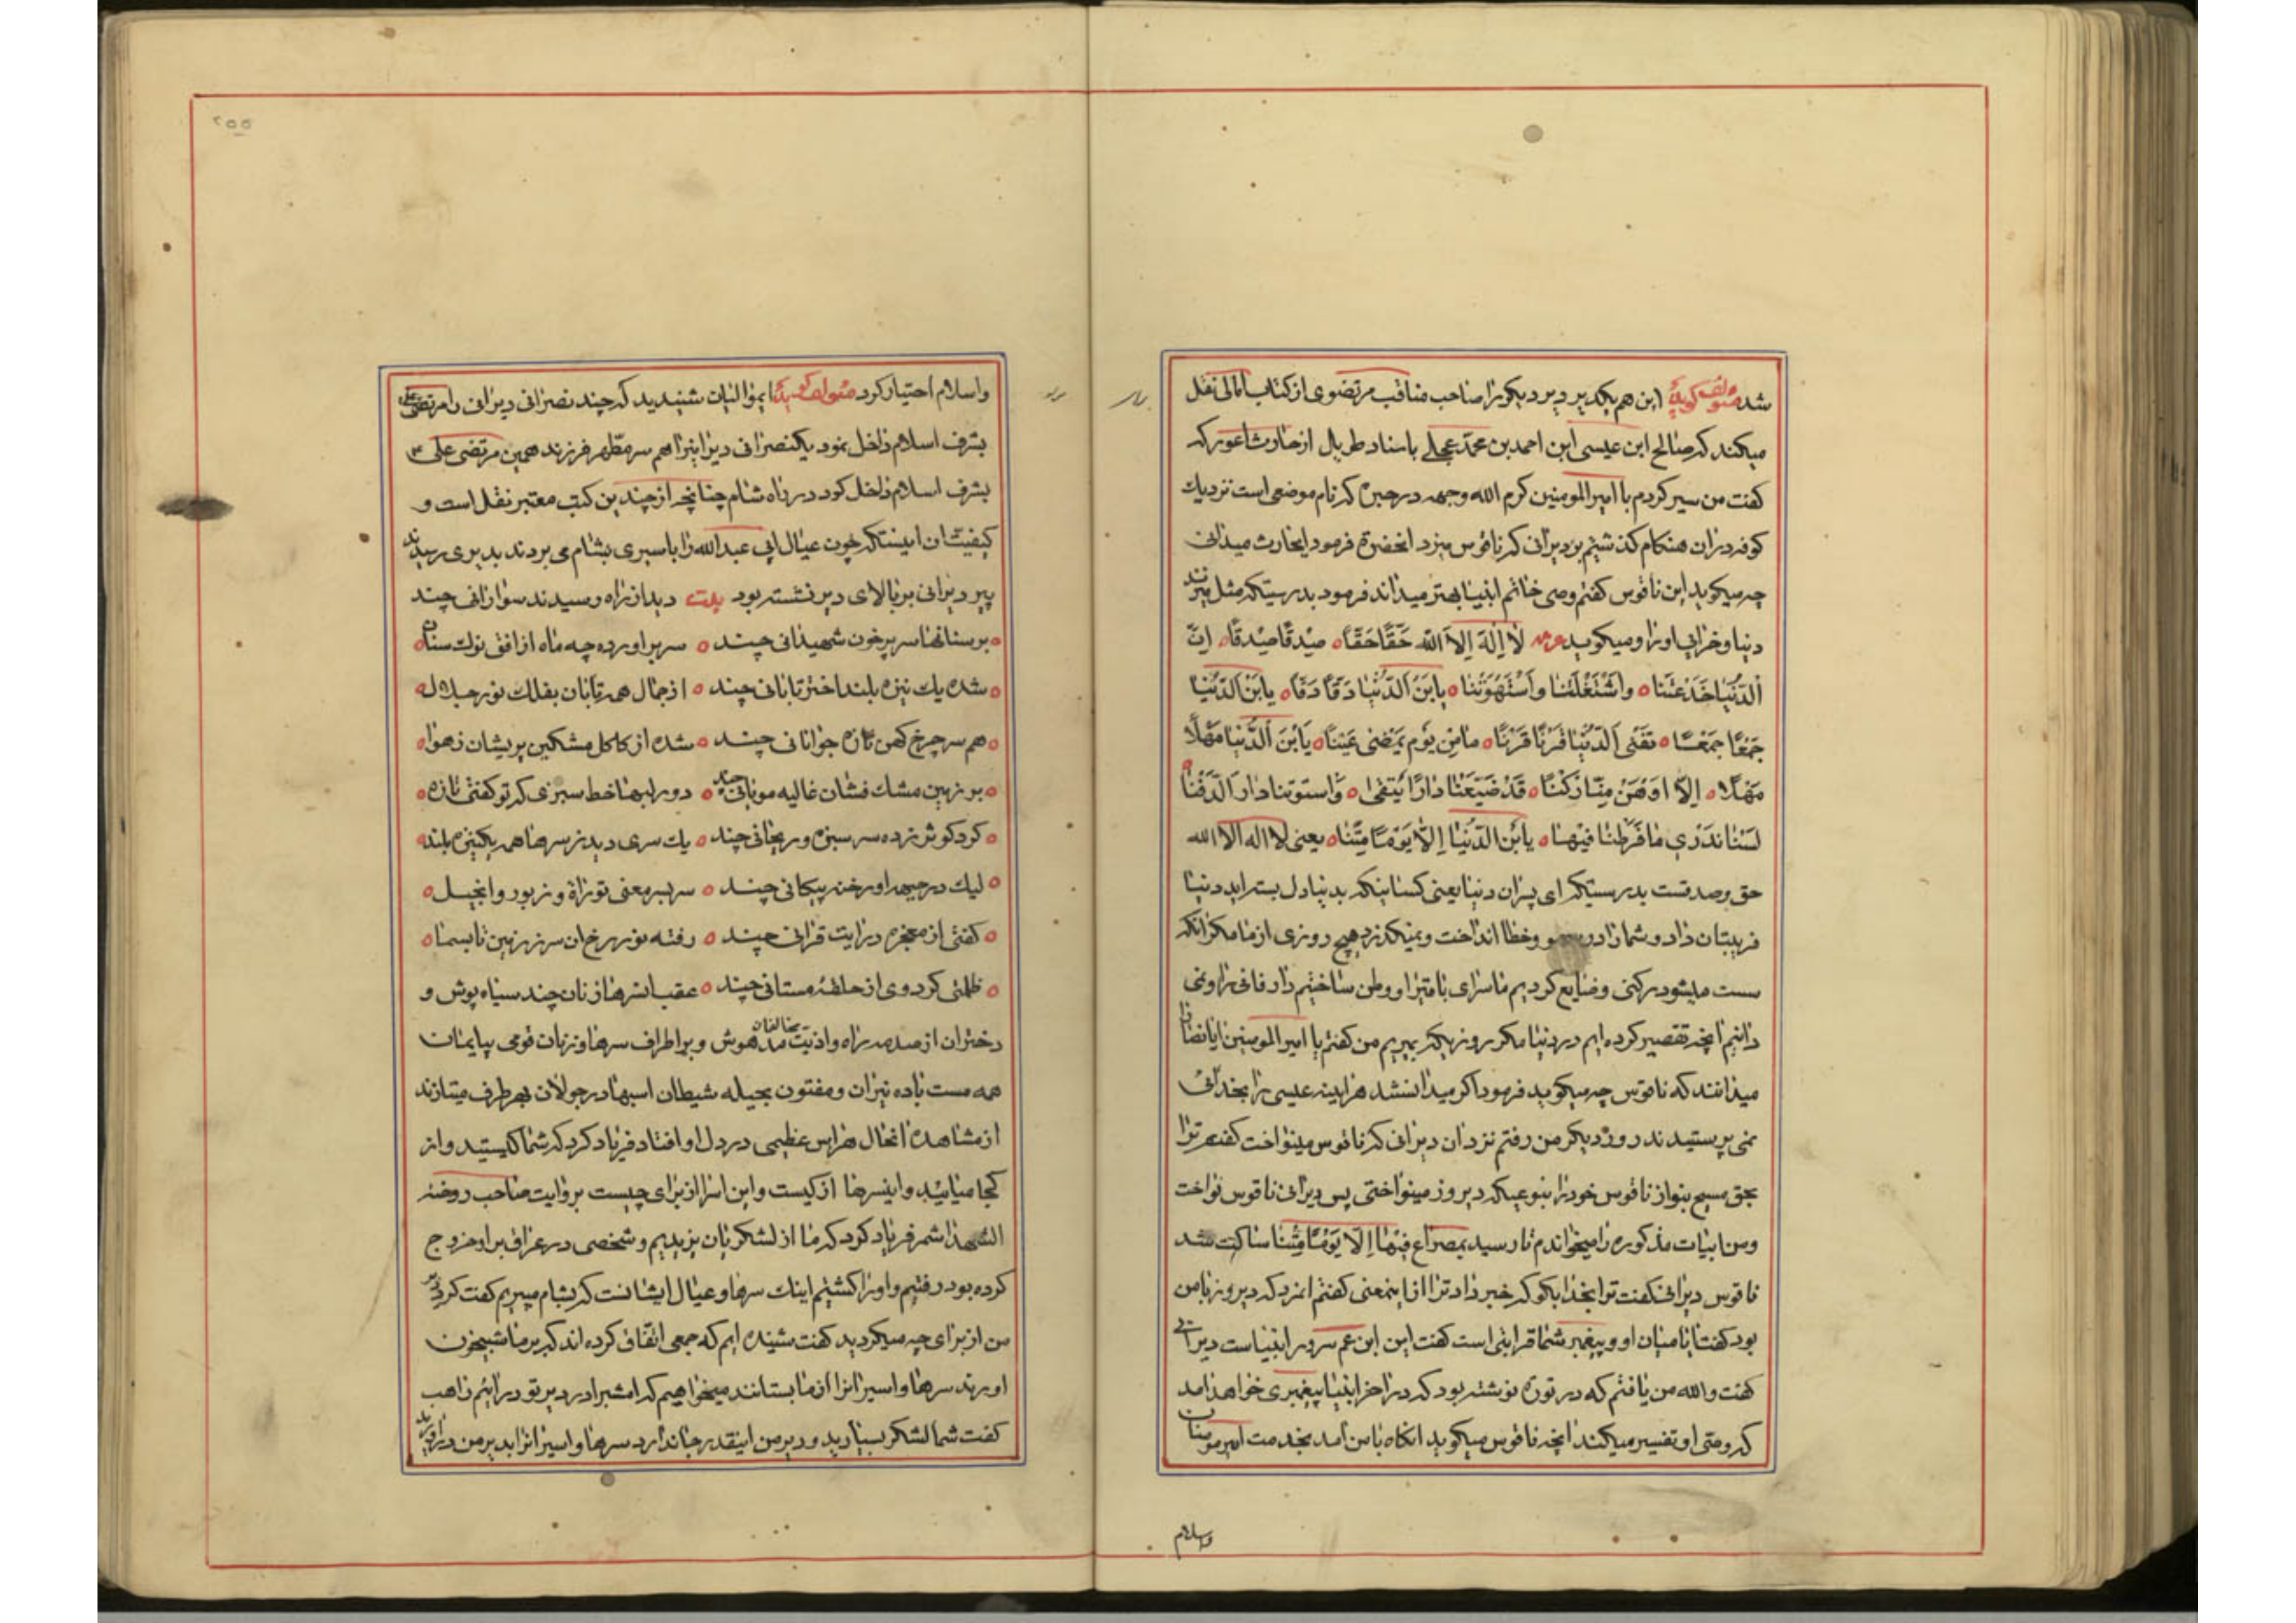 شد مؤلف گوید این هم یکدیر و دیر دیگر را صاحب مناقب مرتضوی از کتاب امالی نقل
میکند که صالح ابن عیسی ابن احمد بن محمد عجلی باسناد طریال از حارث اعور که
کفت من سیر کردم با امیرالمومنین کرم الله وجهه در حیره که نام موضعی است نزدیك
کوفه در ان هنکام کذشتیم بر دیرانی که ناقوس میزد انحضرة فرمود ایحارث میدانی
چه میکوید این ناقوس کفتم وصی خاتم انبیا بهتر میداند فرمود بدرستیکه مثل میزند
دنیا و خرابی او را و میکوید لا اِلٰهَ اِلاَّ الله حَقًّا حَقًّا صِدقًا صِدْقًا اِنَّ
اَلدُّنْیَا خَدَعَتْنَا وَاشْتَغَلَتْنَا وَاسْتَهْوَتْنَا یَابْنَ الدُّنْیَا دَقًّا دَقًّا یابْنَ الدُّنْیَا
جَمْعًا جَمْعًا تَفْنَی الدُّنْیَا قَرْنًا قَرْنًا مَا مِن یَوْم یَمْضی عَنّا یَابْنَ الدُّنْیَا مَهْلًا
مَهْلًا اِلّا اوَهَنْ مِنّا رَکْنًا قَدْ ضَیَّعْنَا دَارًا یَبْقٰی وَاسْتَوْتَنا دَار الدَّفْنٰا
لَسْنَا نَدْرِي مَا فَرَّطْنَا فِیْهَا یابْنَ الدُّنْیَا اِلّا یَوْمًا مِتْنَا یعنی لا اله الا الله
حق و صدقست بدرستیکه ای پسران دنیا یعنی کسانیکه بدنیا دل بسته اید دنیا
فریبتان داد و شما را در سهو و خطا انداخت و نمیکذرد هیچ روزی از ما مکر انکه
سست میشود رکنی و ضایع کردیم ما سرای با متیرا و وطن ساختیم دار فانی را و نمی
دانیم انچه تقصیر کرده ایم در دنیا مکر روزیکه بمیریم من کفتم یا امیر المومنین ایا نصارا
میدانند که ناقوس چه میکوید فرمود اکر میدانستند هراینه عیسی را بخدائی
نمی پرستیدند روز دیکر من رفتم نزد ان دیرانی که ناقوس مینواخت کفتم ترا
بحق مسیح بنواز ناقوس خود را بنوعیکه دیروز مینواختی پس دیرانی ناقوس نواخت
و من ابیات مذکوره را میخواندم تا رسید بمصراع فِیْهَا اِلّا یَوْمًا مِتْنَا ساکت شد
ناقوس دیرانی کفت ترا بخدا بکو که خبر داد ترا از اینمعنی کفتم انمرد که دیروز با من
بود کفت ایا میان او و پیغمبر شما قرابتی است کفت این ابن عم سرور انبیاست دیرانی
کفت والله من یافتم که در توریة نوشته بود که در اخر انبیا پیغمبری خواهد امد
که وصی او تفسیر میکند انچه ناقوس میکوید انکاه با من امد بخدمت امیرمومنان
واسلام
۲۵۵
واسلام اختیار کرد مؤلف کوید ایموالیان شنیدید که چند نصرانی دیرانی را مرتضی علی
بشرف اسلام داخل نمود یکنصرانی دیرانیرا هم سر مطهر فرزند همین مرتضی علی
بشرف اسلام داخل کرد در راه شام چنانچه از چندین کتب معتبر نقل است و
کیفیت ان اینستکه چون عیال ابی عبدالله را باسیری بشام می بردند بدیری رسیدند
پیر دیرانی بر بالای دیر نشسته بود بیت دید از راه رسیدند سوارانی چند
بر سنانها سر پر خون شهیدانی چند سر براورده چه ماه از افق نوك سنان
شده یك نیزه بلند اختر تابانی چند از جمال همه تابان بفلك نور جلال
هم سر چرخ کهن تازه جوانانی چند شده از کاکل مشکین پریشان ز هوا
بر زمین مشك فشان غالیه مویانی چند دور لبها خط سبزی که تو کفتی تازه
کرد کوثر زده سر سبزه و ریحانی چند یك سری دید ز سرها همه یکنیزه بلند
لیك در جبهه او رخنه پیکانی چند سر بسر معنی توراة و زبور و انجیل
کفتی از معجزه در ایت قرانی چند رفته نور رخ ان سر ز زمین تا بسما
ظلمتی کرد وی از حلقه مستانی چند عقب انسرها زنان چند سیاه پوش و
دختران از صدمه راه و اذیت مخالفان مدهوش و بر اطراف سرها و زنان قومی بی ایمان
همه مست باده نیران و مفتون بحیله شیطان اسبها در جولان بهر طرف میتازند
از مشاهده انحال هراس عظیمی در دل او افتاد فریاد کرد که شما کیستید و از
کجا میائید و اینسرها از کیست و این اسرا از برای چیست بروایت صاحب روضة
الشهدا شمر فریاد کرد که ما از لشکریان یزیدیم و شخصی در عراق بر او خروج
کرده بود رفتیم و او را کشتیم اینك سرها و عیال ایشانست که بشام میبریم کفت کرد دیر
من از برای چه میکردید کفت شنیده ایم که جمعی اتفاق کرده اند که بر ما شبیخون
اورند سرها و اسیرانرا از ما بستانند میخواهیم که امشبرا در دیر تو درائیم راهب
کفت شما لشکر بسیارید و دیر من اینقدر جا ندارد سرها و اسیرانرا بدیر من دراورید